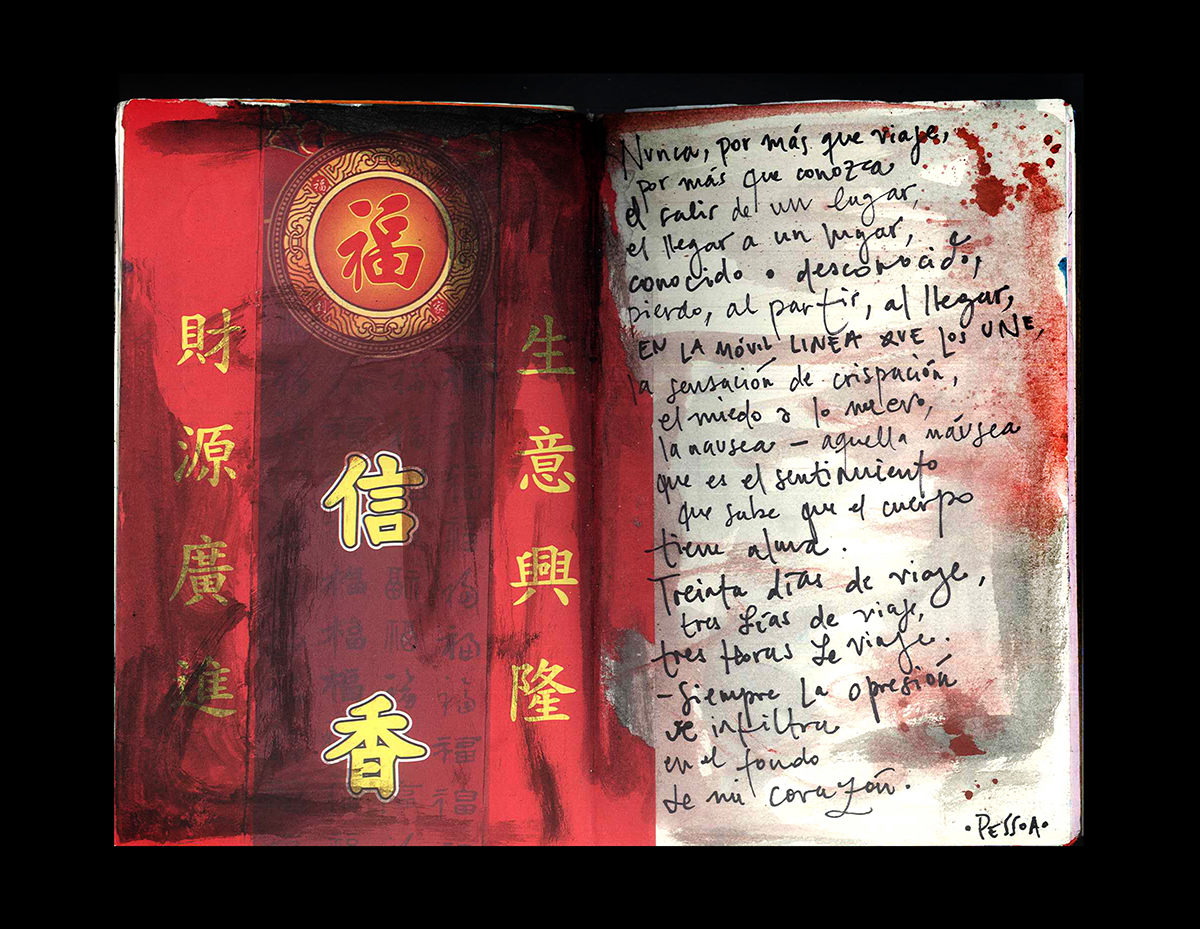 福
財源廣進
信香
生意興隆
Nunca, por más que viaje,
por más que conozca
el salir de un lugar,
el llegar a un lugar,
conocido o desconocido,
pierdo, al partir, al llegar,
EN LA MÓVIL LINEA QUE LOS UNE,
la sensación de crispación,
el miedo a lo nuevo,
la nausea – aquella náusea
que es el sentimiento
que sabe que el cuerpo
tiene alma.
Treinta días de viaje,
tres días de viaje,
tres horas de viaje.
– Siempre la opresión
se infiltra
en el fondo
de mi corazón.
• PESSOA •